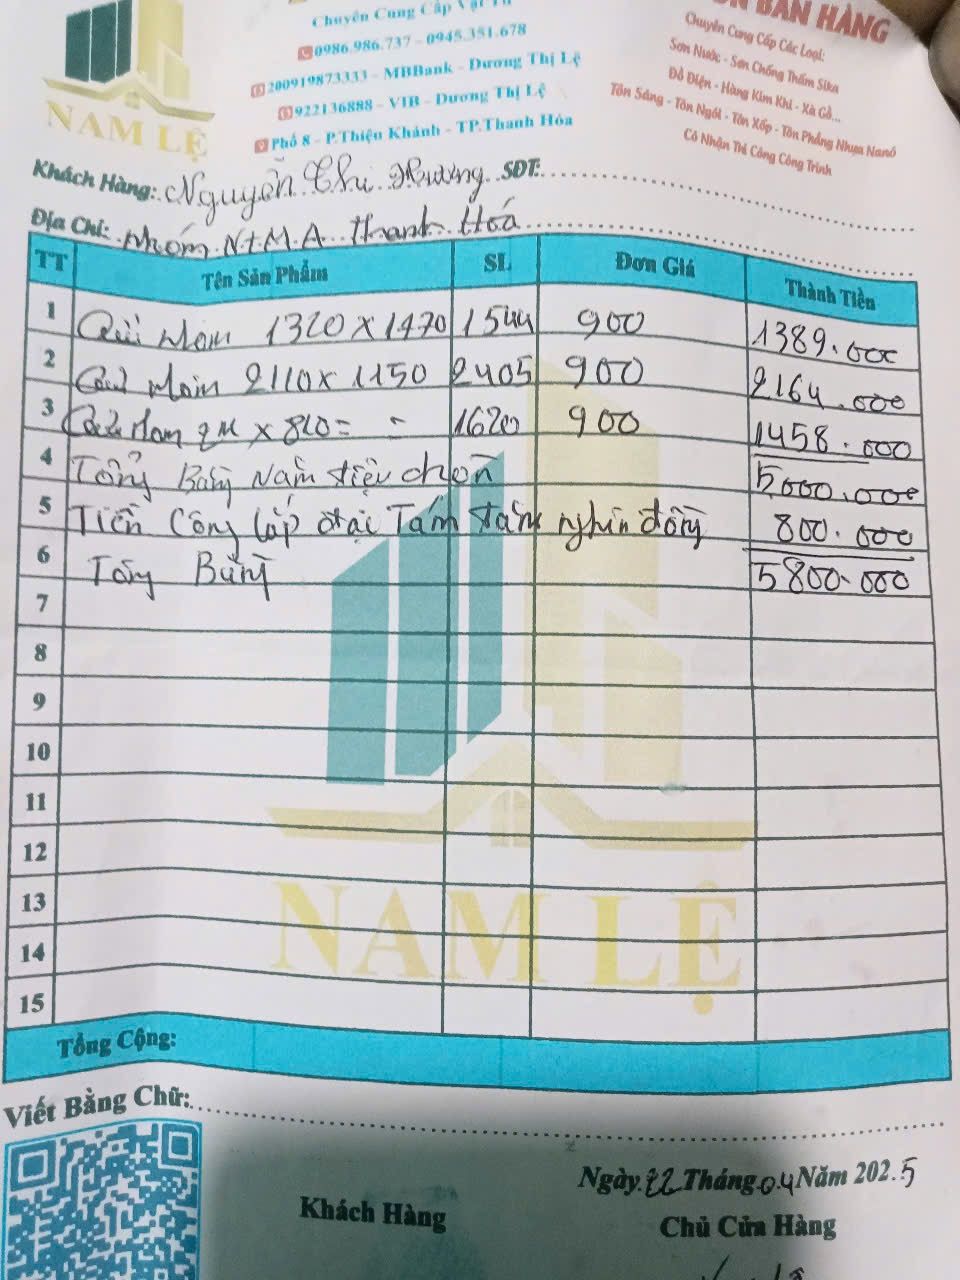 Chuyên Cung Cấp Vật Tư
0986.986.737 - 0945.351.678
200919873333 - MBBank - Dương Thị Lệ
922136888 - VIB - Dương Thị Lệ
Phố 8 - P.Thiệu Khánh - TP.Thanh Hóa
NAM LỆ
BÁN HÀNG
Chuyên Cung Cấp Các Loại:
Sơn Nước - Sơn Chống Thấm Sika
Đồ Điện - Hàng Kim Khí - Xà Gồ...
Tôn Sáng - Tôn Ngói - Tôn Xốp - Tôn Phẳng Nhựa Nanô
Có Nhận Thi Công Công Trình
Khách Hàng: Nguyễn Thị Hương SĐT:
Địa Chỉ: Nhóm N.T.M.A Thanh Hoá
TT Tên Sản Phẩm SL Đơn Giá Thành Tiền
1 Cửa Nhôm 1320 x 1470 1544 900 1389.000
2 Cửa Nhôm 2110 x 1150 2405 900 2164.000
3 Cửa Nhôm 2M x 810 = = 1620 900 1458.000
4 Tổng Bằng Năm triệu chẵn 5.000.000
5 Tiền Công lắp đặt Tám trăm nghìn đồng 800.000
6 Tổng Bằng 5800.000
7
8
9
10
11
12
13
14
15
NAM LỆ
Tổng Cộng:
Viết Bằng Chữ:
Ngày 22 Tháng 04 Năm 2025
Khách Hàng Chủ Cửa Hàng